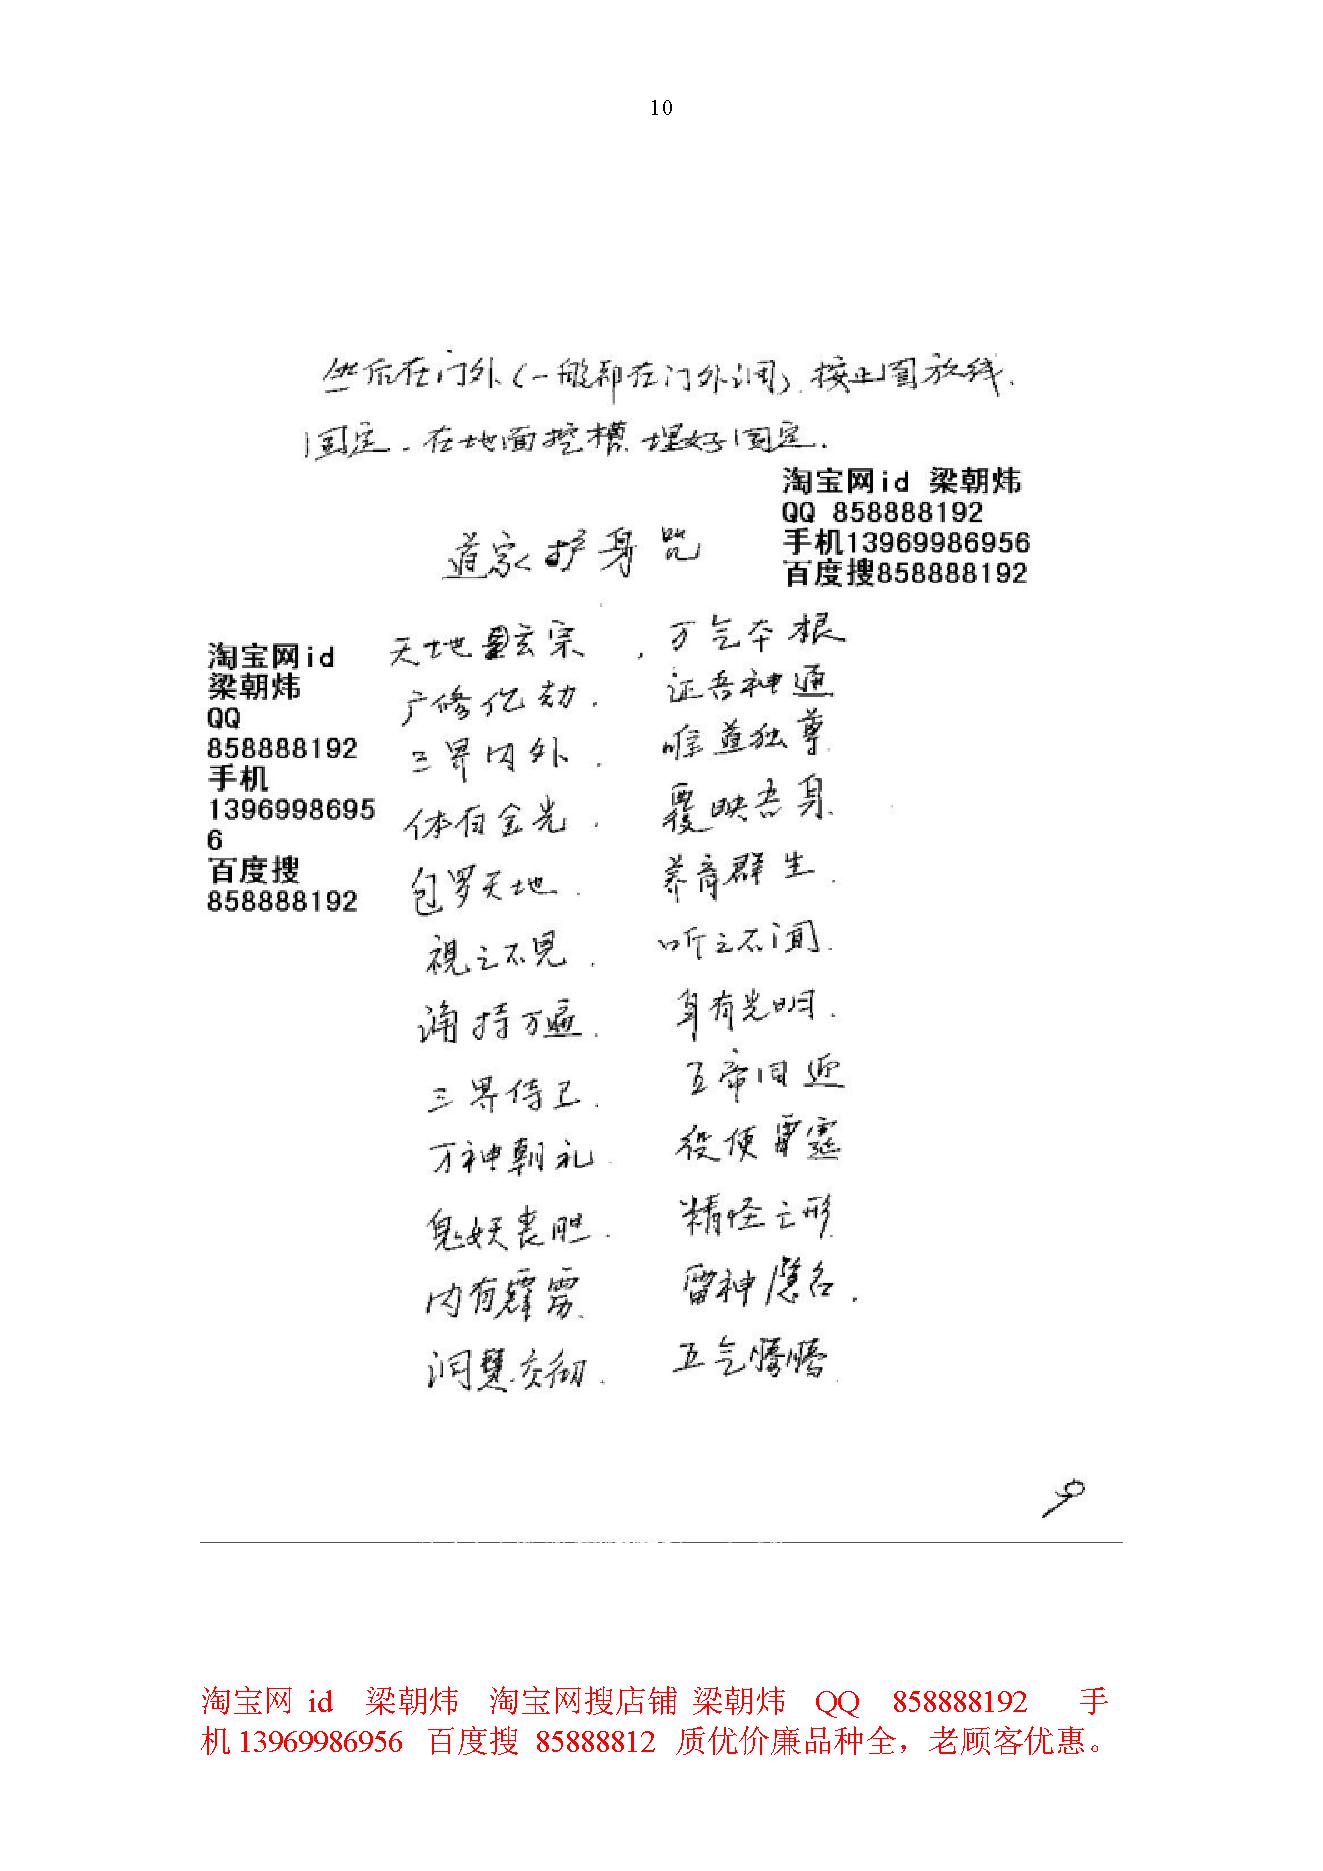 10
然后在门外(一般都在门外调).按正圆放线.
固定.在地面挖槽.埋好固定.
淘宝网id 梁朝炜
QQ 858888192
手机13969986956
百度搜858888192
道家护身咒
淘宝网id
梁朝炜
QQ
858888192
手机
1396998695
6
百度搜
858888192
天地玄宗 , 万气本根
广修亿劫. 证吾神通
三界内外. 唯道独尊
体有金光. 覆映吾身.
包罗天地. 养育群生.
視之不見. 听之不闻.
诵持万遍. 身有光明.
三界侍卫. 五帝司迎
万神朝礼. 役使雷霆
鬼妖丧胆. 精怪亡形.
内有霹雳. 雷神隐名.
洞慧交彻. 五气腾腾.
9
淘宝网 id 梁朝炜 淘宝网搜店铺 梁朝炜 QQ 858888192 手
机 13969986956 百度搜 85888812 质优价廉品种全，老顾客优惠。